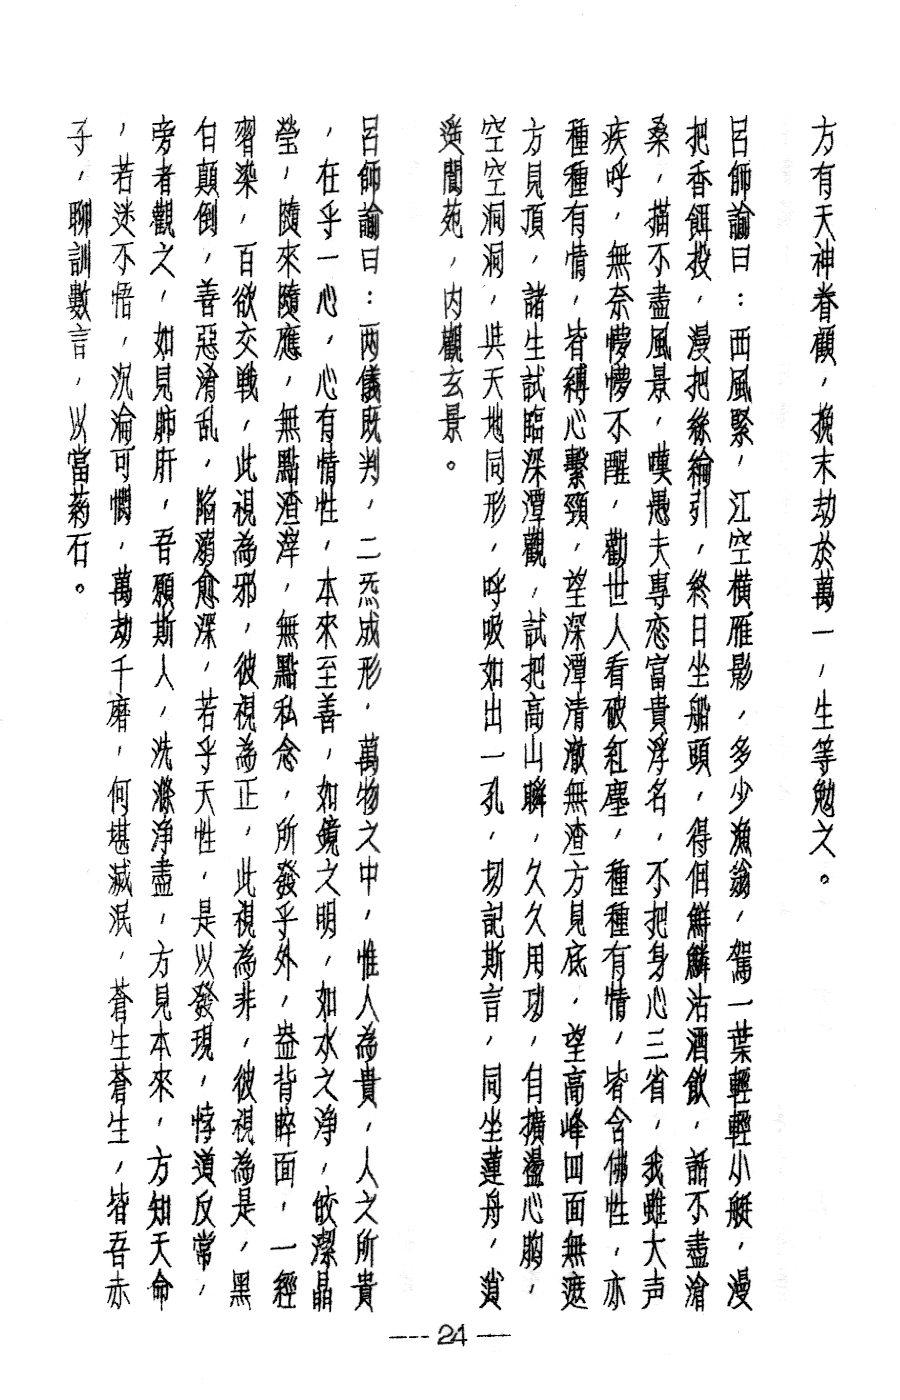 方有天神眷顧，挽末劫於萬一，生等勉之。
呂師諭曰：西風緊，江空橫雁影，多少漁翁，駕一葉輕輕小艇，漫
把香餌投，漫把絲綸引，終日坐船頭，得個鮮鱗沽酒飲，話不盡滄
桑，描不盡風景，嘆愚夫專恋富貴浮名，不把身心三省，我雖大声
疾呼，無奈懜懜不醒，勸世人看破紅塵，種種有情，皆含佛性，亦
種種有情，皆縛心繫頸，望深潭清澈無渣方見底，望高峰四面無遮
方見頂，諸生試臨深潭觀，試把高山瞬，久久用功，自擴盪心胸，
空空洞洞，共天地同形，呼吸如出一孔，切記斯言，同坐蓮舟，逍
遙閬苑，內觀玄景。
呂師諭曰：两儀既判，二炁成形，萬物之中，惟人為貴，人之所貴
，在乎一心，心有情性，本來至善，如鏡之明，如水之淨，皎潔晶
瑩，隨來隨應，無點渣滓，無點私念，所發乎外，盎背睟面，一經
習染，百欲交戰，此視為邪，彼視為正，此視為非，彼視為是，黑
白顛倒，善惡淆乱，陷溺愈深，若乎天性，是以發現，悖道反常，
旁者觀之，如見肺肝，吾願斯人，洗滌淨盡，方見本來，方知天命
，若迷不悟，沉淪可憫，萬劫千磨，何堪滅泯，蒼生蒼生，皆吾赤
子，聊訓數言，以當葯石。
--- 24 ---